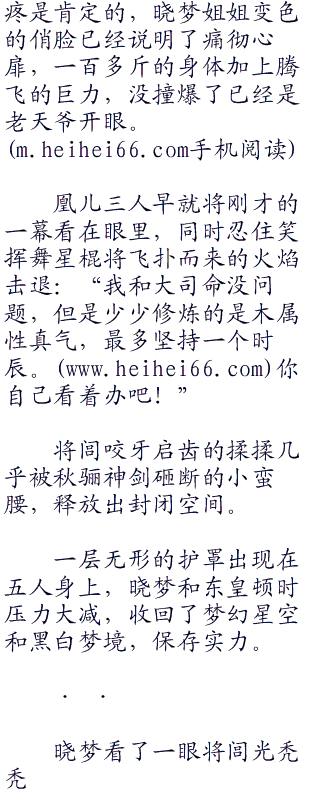 疼是肯定的，晓梦姐姐变色
的俏脸已经说明了痛彻心
扉，一百多斤的身体加上腾
飞的巨力，没撞爆了已经是
老天爷开眼。
(m.heihei66.com手机阅读)
凰儿三人早就将刚才的
一幕看在眼里，同时忍住笑
挥舞星棍将飞扑而来的火焰
击退：“我和大司命没问
题，但是少少修炼的是木属
性真气，最多坚持一个时
辰。(www.heihei66.com)你
自己看着办吧！”
将闾咬牙启齿的揉揉几
乎被秋骊神剑砸断的小蛮
腰，释放出封闭空间。
一层无形的护罩出现在
五人身上，晓梦和东皇顿时
压力大减，收回了梦幻星空
和黑白梦境，保存实力。
．．
晓梦看了一眼将闾光秃
秃